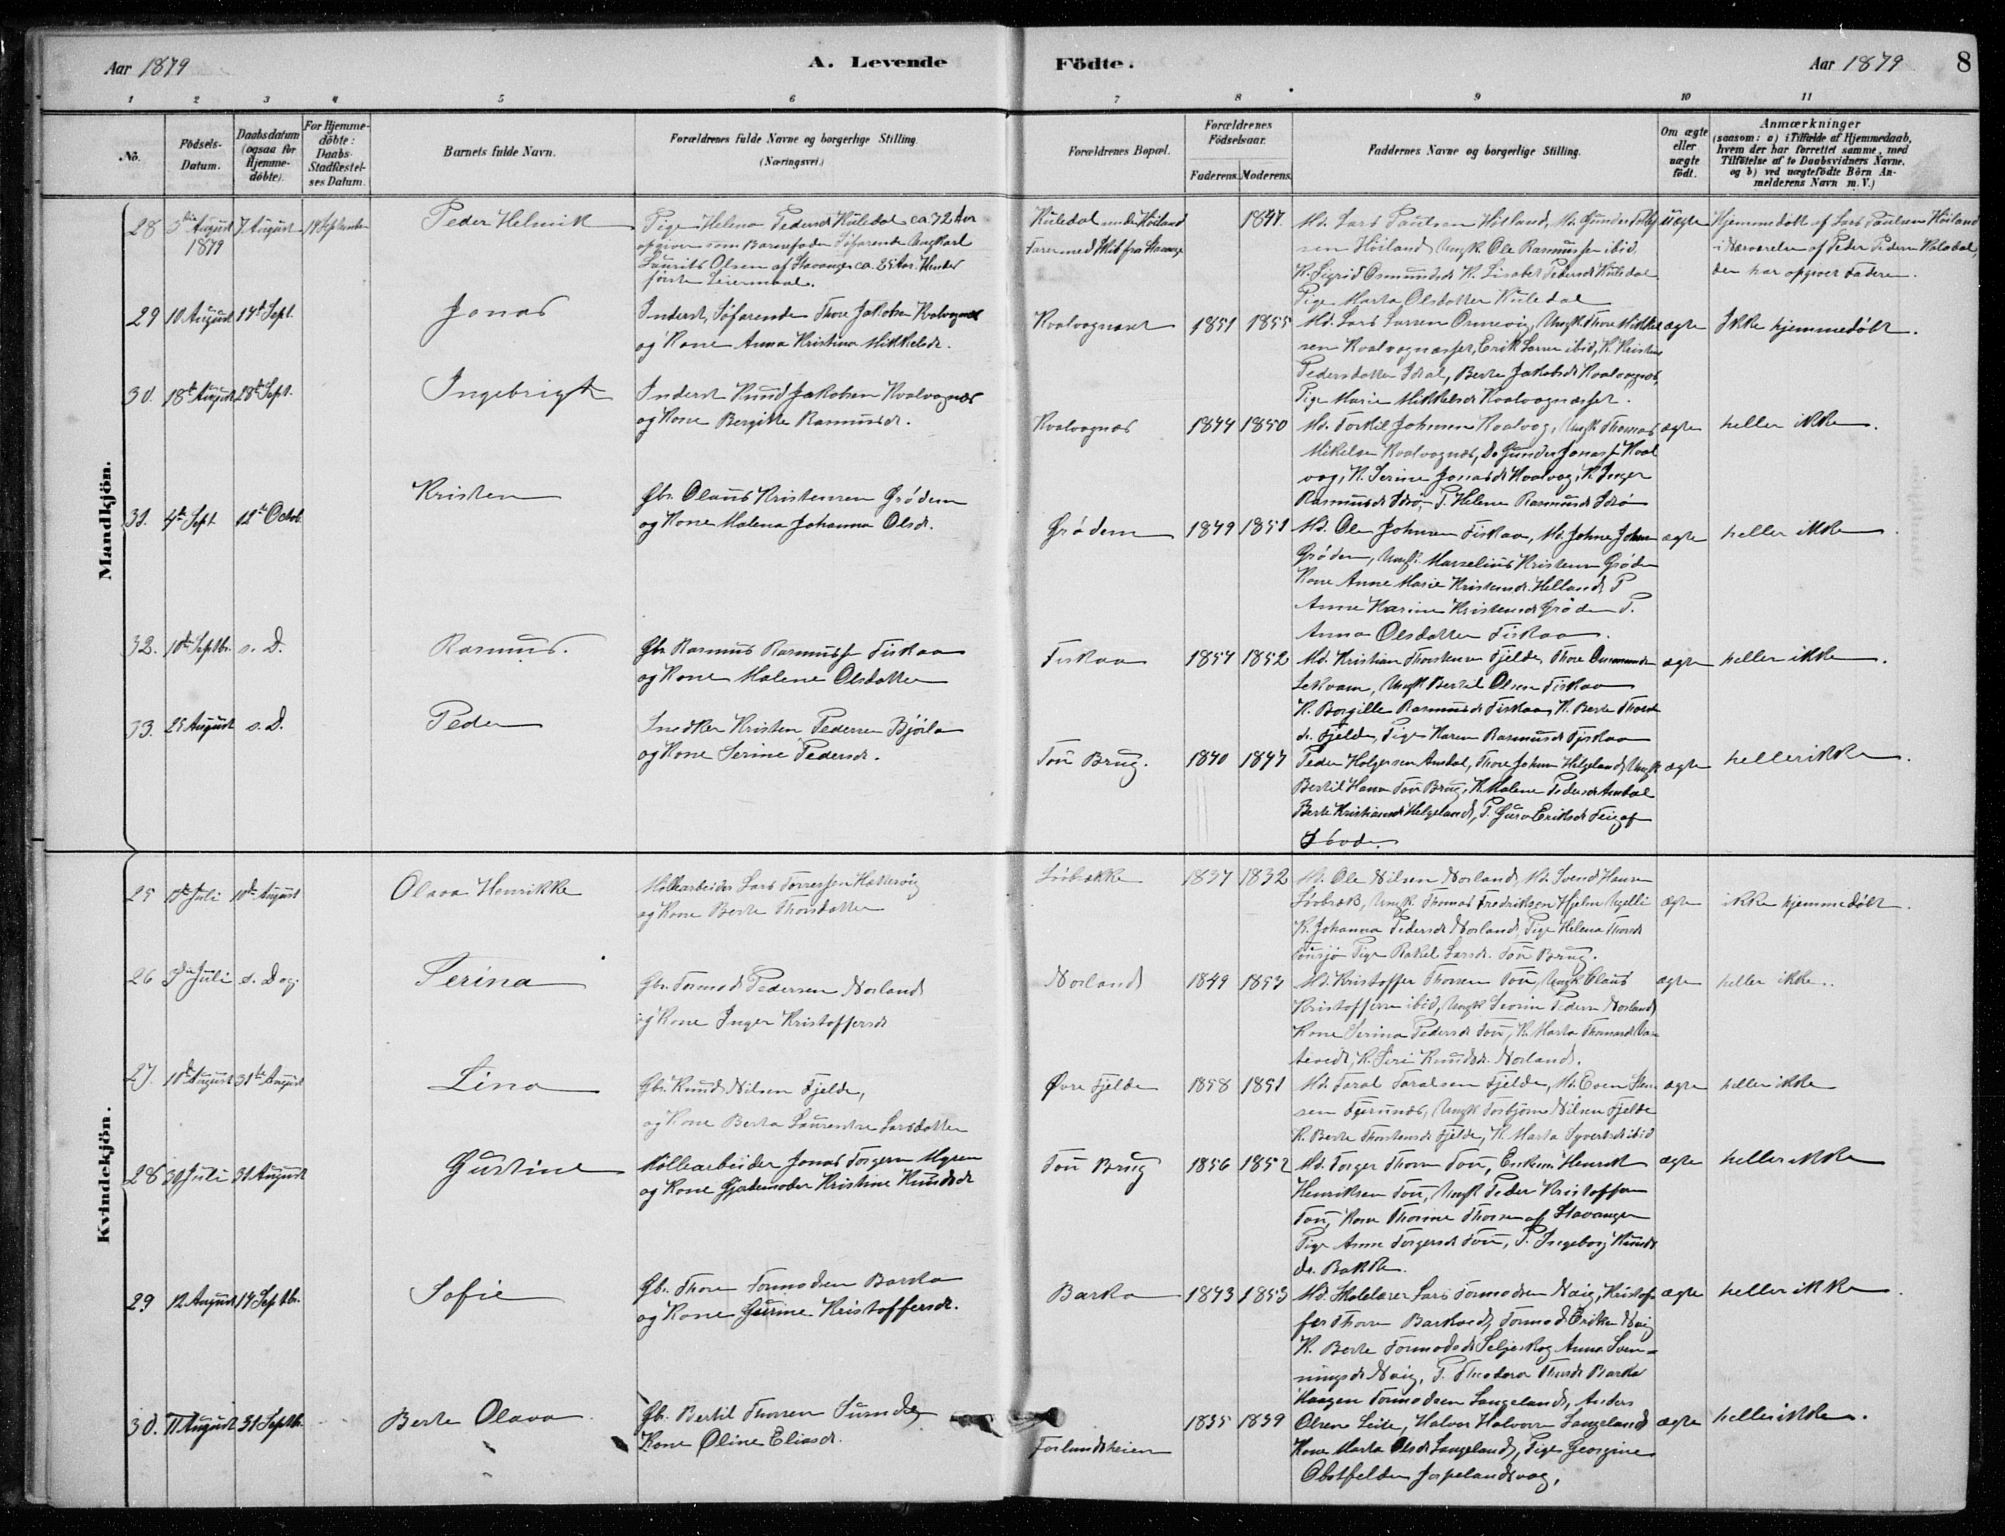 Aar 1879
A. Levende
Födte.
Aar 1879
8
1 2 3 4 5 6 7 8 9 10 11
No.
Födsels-
Datum.
Daabsdatum
(ogsaa for
Hjemme-
döbte).
For Hjemme-
döbte:
Daabs-
Stadfæstel-
ses Datum.
Barnets fulde Navn.
Forældrenes fulde Navne og borgerlige Stilling.
(Næringsvei.)
Forældrenes Bopæl.
Forældrenes
Födselsaar.
Faderens. Moderens.
Faddernes Navne og borgerlige Stilling.
Om ægte
eller
uægte
födt.
Anmærkninger
(saasom: a) i Tilfælde af Hjemmedaab,
hvem der har forrettet samme, med
Tilföielse af to Daabsvidners Navne.
og b) ved uægtefödte Börn An-
melderens Navn m. V.)
Mandkjön.
28 5te August 7 August 14 September
1879
Peder Helmik
Pige Helena Pedersdr Kuledal ca. 32 Aar
opgiver som Barnefader Söfarende Ungkarl
Laurits Olsen af Stavanger ca. 25 Aar. Hendes
förste Leiermaal.
Kuledal under Höiland
1847
Md. Lars Paulsen Höiland, Md. Gunder
sen Höiland, Ungk. Ole Rasmussen ibid
K. Sigrid Osmundsdr K. Lisabet Pedersdr Kuledal
Pige Marta Olsdatter Kuledal
uægte
Hjemmedöbt af Lars Paulsen Höiland
i Nærværelse af Peder Pedersen Kuledal,
der har opgivet Faderen.
29 10 August 14de Sept.
Jonas
Inderst, Söfarende Thore Jakobsen Kvalvognæs
og Kone Anna Kristina Mikkelsdr.
Kvalvognæset
1851 1855
Md. Lars Larsen Ormevig, Ungk Thore Mikkel
sen Kvalvognæsset, Erik Larsen ibid, K. Kristine
Pedersdatter Idsal, Berte Jakobsdr Kvalvognæs,
Pige Marie Mikkelsdr Kvalvognæsset.
ægte
Ikke hjemmedöbt.
30. 18de August 28de Sept.
Ingebrigt
Inderst Knud Jakobsen Kvalvognæs
og Kone Bergitte Rasmusdr.
Kvalvognæs
1844 1850
Md. Torkil Johnsen Kvalvog, Ungk Thomas
Mikelsen Kvalvognæs, Do Gunder Jonassen Kval
vog, K. Serine Jonasdr Kvalvog, K. Inger
Rasmusdr Idsö, P. Helene Rasmusdr Idsö
ægte
heller ikke.
31. 4de Sept 12te Octob.
Kristen
Gbr. Olaus Kristensen Grödem
og Kone Malena Johanna Olsdr.
Grödem
1849 1851
Md. Ole Johnsen Fiskaa, Md. Johne Johnsen
Grödem, Ungk. Marselius Kristensen Grödem
Kone Anne Marie Kristensdr. Helland, P
Anne Karine Kristensdr Grödem P.
Anna Olsdatter Fiskaa.
ægte
heller ikke
32. 10de Septbr. s. D.
Rasmus.
Gbr. Rasmus Rasmussen Fiskaa
og Kone Malene Olsdatter
Fiskaa
1854 1852
Md. Kristian Thorstensen Fjelde, Thore
Lekvam, Ungk Bertil Olsen Fiskaa
K. Borgille Rasmusdr Fiskaa, K. Berte
dr. Fjelde, Pige Karen Rasmusdr Fiskaa
ægte
heller ikke.
33. 25 August s. D.
Peder
Snedker Kristen Pedersen Björlo
og Kone Serine Pedersdr.
Tou Brug.
1840 1847
Peder Holgersen Amdal, Thore Johnsen Helgeland, Ungk
Bertil Hansen Tou Brug, K. Malene Pedersdr Amdal
Berte Kristiansdr Helgeland, P. Guro Eriksdr
ægte
heller ikke
Kvindekjön.
25 Juli 10de August
Olava Henrikke
Möllearbeider Lars Torressen
og Kone Berte Thorsdatter
Löbrække
1837 1832
Md. Ole Nilsen Norland, Md. Svend Hansen
Ungk. Thomas Fredriksen Hjelm
K. Johanna Pedersdr Norland, Pige Helena
Pige Rakel Larsdr. Tou Brug.
ægte
ikke hjemmedöbt.
26 Juli s. Dag.
Serina
Gbr. Tormod Pedersen Norland
og Kone Inger Kristoffersdr
Norland
1849 1853
Md. Kristoffer Thorsen Tou, Ungk Claus
Kristoffersen ibid, Ungk Pedersen Norland,
Kone Serina Pedersdr Tou, K. Marta Thomasdr
K. Siri Knudsdr. Norland.
ægte
heller ikke.
27. 10de August 31te August
Lina
Gbr. Knud Nilsen Fjelde,
og Kone Berta Laurentse Larsdatter
Øvre Fjelde
1858 1851
Md. Taral Taralsen Fjelde, Md. Even
sen Ungk Torbjörn Nilsen Fjelde
K. Berte Thorstensdr Fjelde, K. Marta Syvertsdr ibid
ægte
heller ikke
28 30 Juli 31 August
Gustine
Möllearbeider Jonas Torgersen Myren
og Kone Kristine Knudsdr
Tou Brug
1856 1852
Md. Torger Thorsen Tou, Enkem. Henrik
Henriksen Tou, Ungk Peder Kristoffersen
Tou, Kone Thorine Thorsen af Stavanger
Pige Anne Torgersdr Tou, P. Ingeborg Knuds
dr. Bakke.
ægte
heller ikke
29 12 August 14 Septbr.
Sofie
Gbr. Thore Tormodsen Barka
og Kone Gurine Kristoffersdr.
Barka
1843 1853
Md. Skolelærer Lars Tormodsen Naig, Kristof
fer Thorsen Barkved, Tormod Eriksen Naig
K. Berte Tormodsdr Seljeskog Anna Sven-
ningsdr Naig, P. Theodora Thorsdr Barka
ægte
heller ikke.
30. 11 August Septbr.
Berte Olava
Gbr. Bertil Thorsen
Kone Oline Eliasdr.
Forlundsheien
1835 1839
Haagen Tormodsen Langeland, Anders
Olsen Leite, Halvor Halvorsen Langeland
Kone Marta Olsdr Langeland, Pige Georgine
Obstfelder Jorpelandsvaag.
ægte
heller ikke.